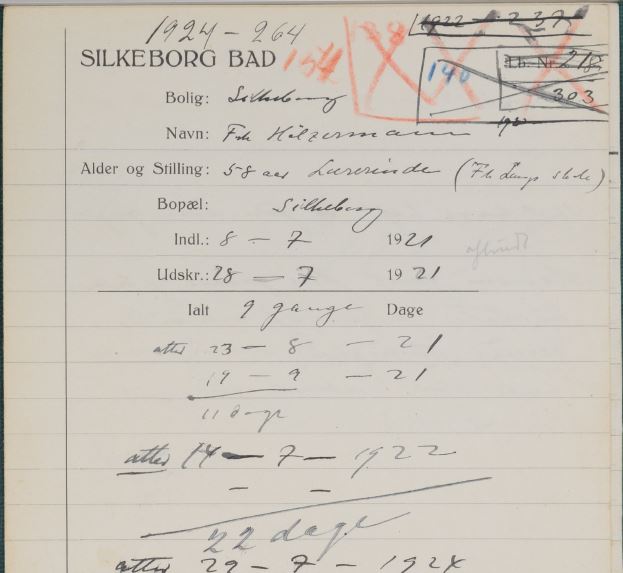 1924 - 264
1922 - 237
SILKEBORG BAD 154
140
Lb. Nr. 218
303
Bolig: Silkeborg
Navn: Frk Hölzermann
Alder og Stilling: 58 aar Lærerinde (Frk Langs Skole)
Bopæl: Silkeborg
Indl.: 8 - 7 1921
Udskr.: 28 - 7 1921
Ialt 9 gange Dage
atter 23 - 8 - 21
19 - 9 - 21
11 dage
atter 14 - 7 - 1922
- -
22 dage
atter 29 - 7 - 1924